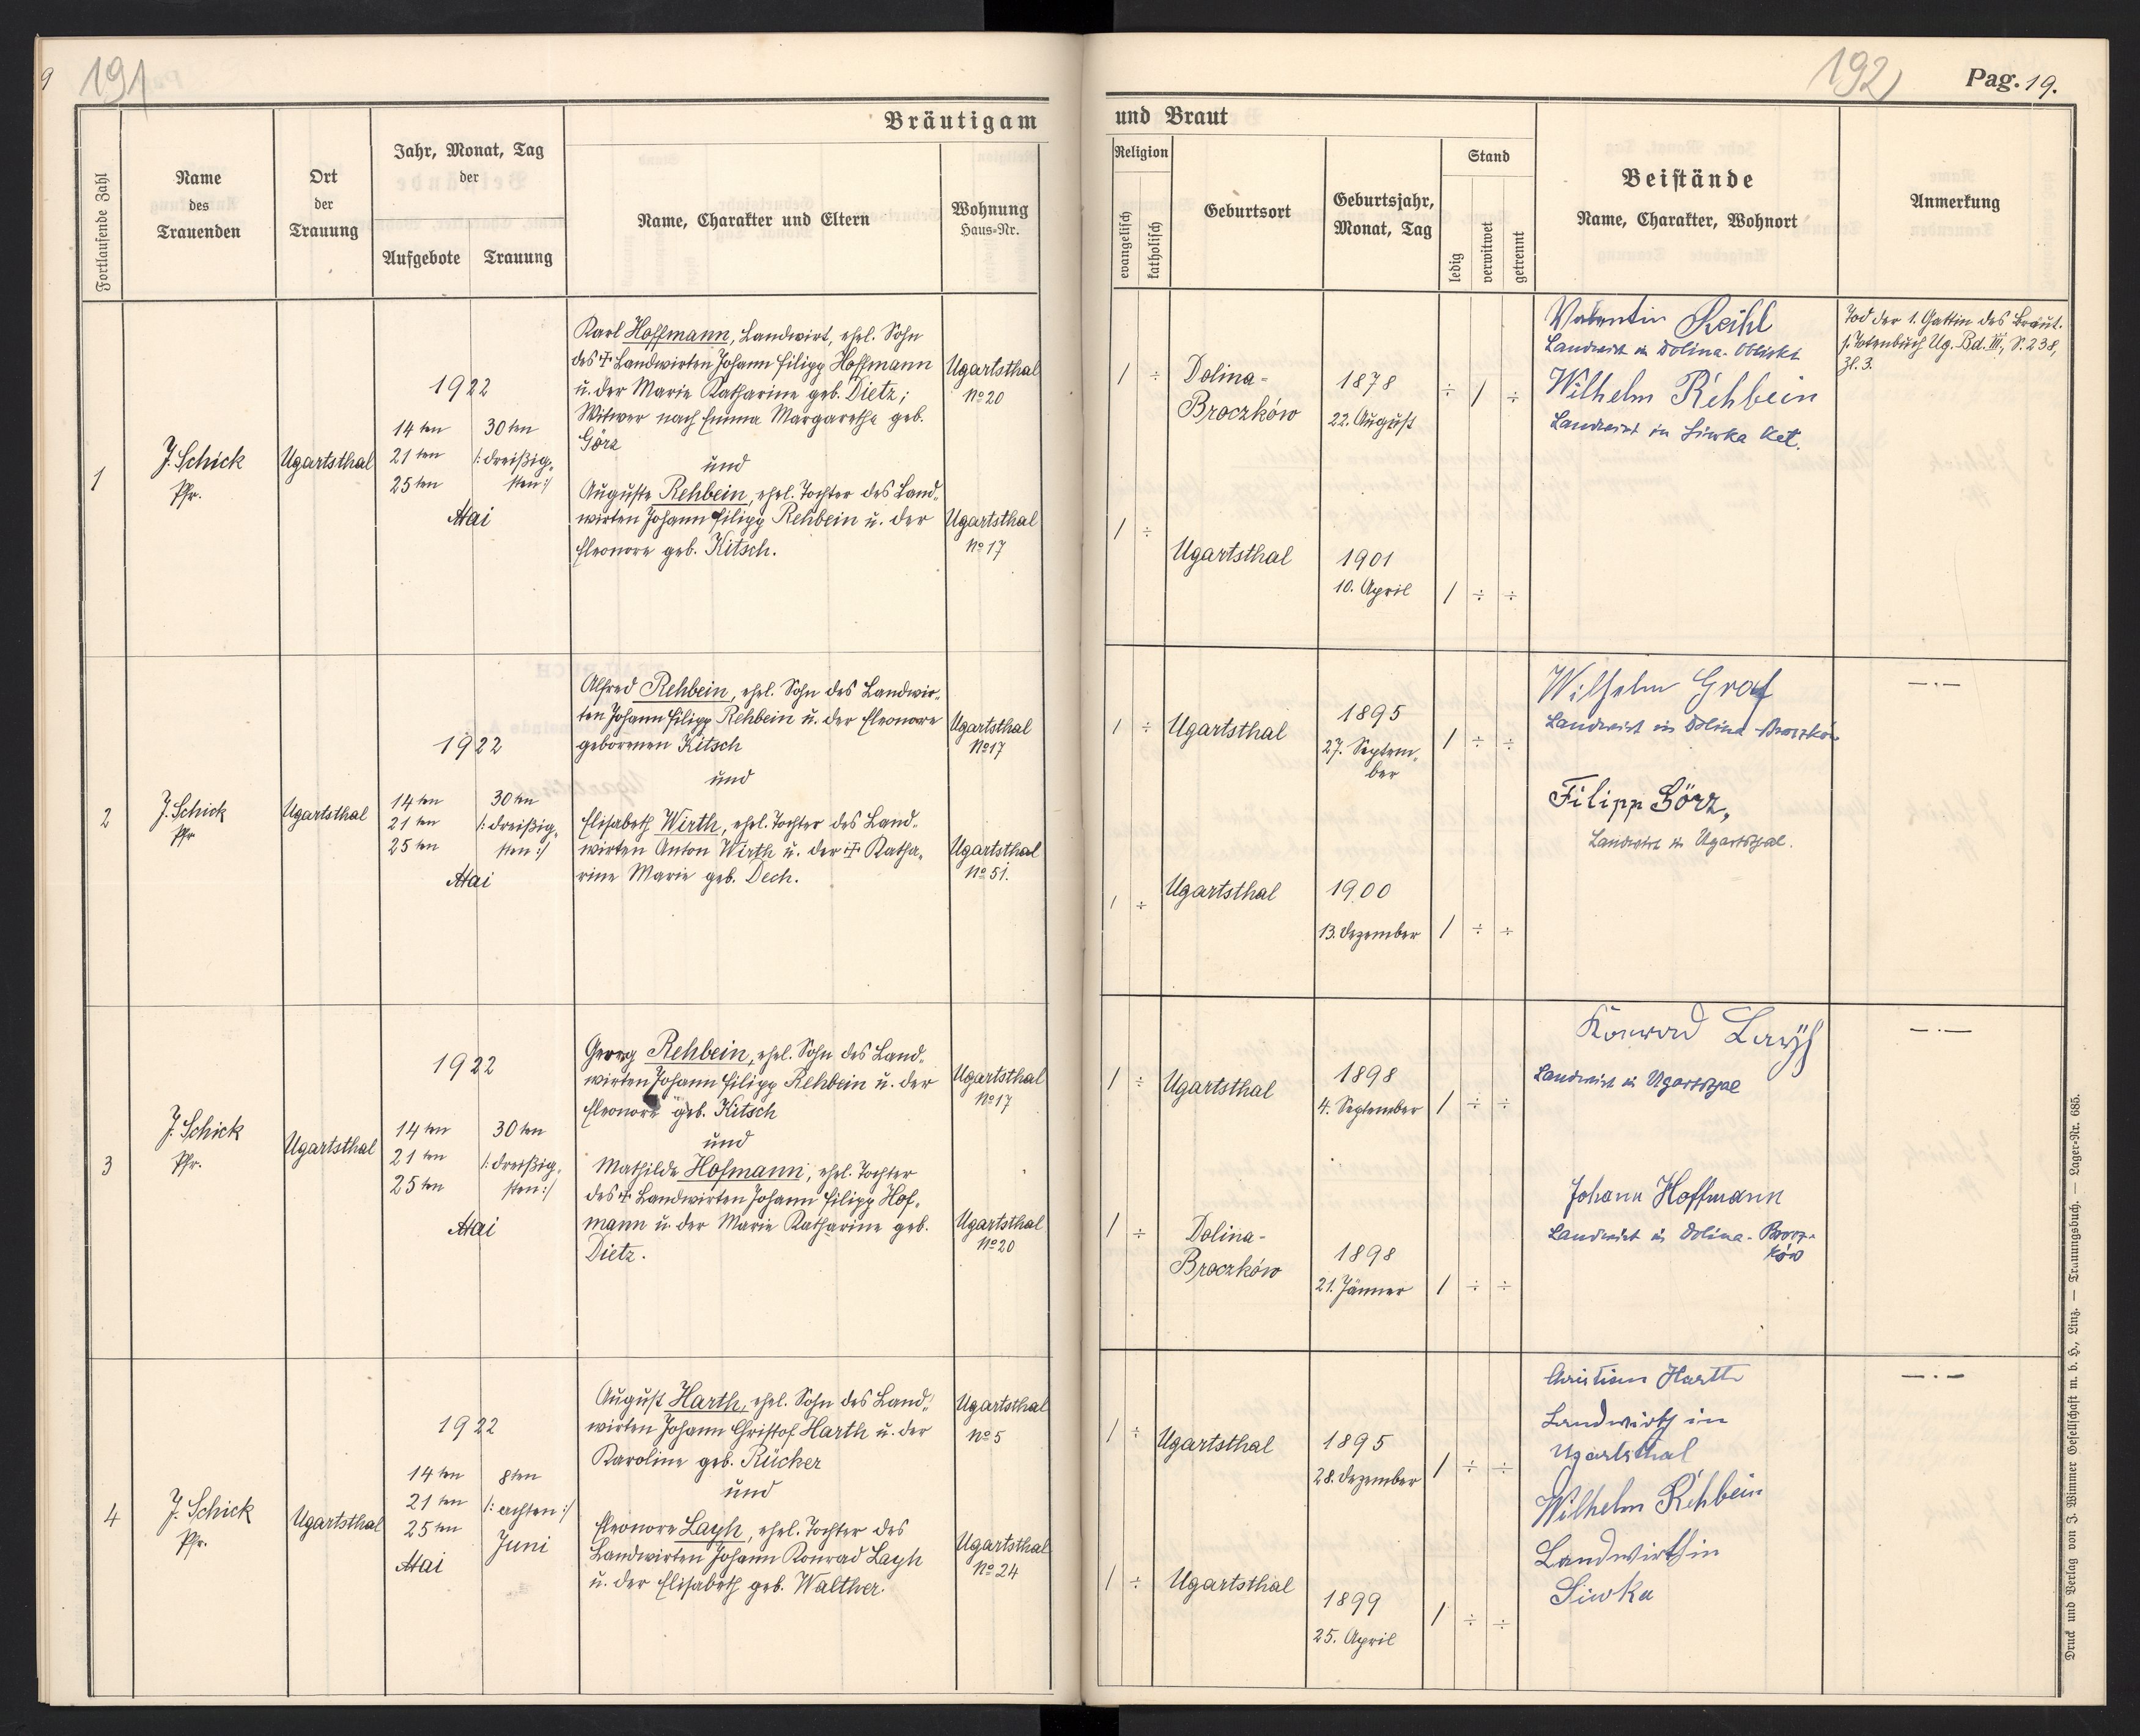 9
191
Bräutigam
Fortlaufende Zahl
Name
des
Trauenden
Ort
der
Trauung
Jahr, Monat, Tag
der
Aufgebote
Trauung
Name, Charakter und Eltern
Wohnung
Haus-Nr.
1
J. Schick
Pfr.
Ugartsthal
1922
14ten
21ten
25ten
30ten
/:dreißig-
sten:/
Mai
Karl Hoffmann, Landwirt, ehel. Sohn
des ☩ Landwirten Johann Filipp Hoffmann
u. der Marie Katharine geb. Dietz;
Witwer nach Emma Margarethe geb.
Görz
und
Auguste Rehbein, ehel. Tochter des Land-
wirten Johann Filipp Rehbein u. der
Eleonore geb. Kitsch.
Ugartsthal
No 20
Ugartsthal
No 17
2
J. Schick
Pfr.
Ugartsthal
1922
14ten
21ten
25ten
30ten
/:dreißig-
sten:/
Mai
Alfred Rehbein, ehel. Sohn des Landwir-
ten Johann Filipp Rehbein u. der Eleonore
geborenen Kitsch
und
Elisabeth Wirth, ehel. Tochter des Land-
wirten Anton Wirth u. der ☩ Katha-
rine Marie geb. Dech.
Ugartsthal
No 17
Ugartsthal
No 51.
3
J. Schick
Pfr.
Ugartsthal
1922
14ten
21ten
25ten
30ten
/:dreißig-
sten:/
Mai
Georg Rehbein, ehel. Sohn des Land-
wirten Johann Filipp Rehbein u. der
Eleonore geb. Kitsch
und
Mathilde Hofmann, ehel. Tochter
des ☩ Landwirten Johann Filipp Hof-
mann u. der Marie Katharine geb.
Dietz.
Ugartsthal
No 17
Ugartsthal
No 20
4
J. Schick
Pfr.
Ugartsthal
1922
14ten
21ten
25ten
Mai
8ten
/:achten:/
Juni
August Harth, ehel. Sohn des Land-
wirten Johann Christof Harth u. der
Karoline geb. Rücker
und
Eleonore Layh, ehel. Tochter des
Landwirten Johann Konrad Layh
u. der Elisabeth geb. Walther.
Ugartsthal
No 5
Ugartsthal
No 24
192
Pag. 19.
und Braut
Religion
evangelisch
katholisch
Geburtsort
Geburtsjahr,
Monat, Tag
Stand
ledig
verwitwet
getrennt
Beistände
Name, Charakter, Wohnort
Anmerkung
1 ÷
Dolina-
Broczków
1878
22. August
÷ 1 ÷
1 ÷
Ugartsthal
1901
10. April
1 ÷ ÷
Valentin Keihl
Landwirt in Dolina-Obliski
Wilhelm Rehbein
Landwirt in Siwka Kat.
Tod der 1. Gattin des Bräut.
s. Totenbuch Ug. Bd. III, S. 238,
Zl. 3.
1 ÷
Ugartsthal
1895
27. Septem-
ber
1 ÷ ÷
1 ÷
Ugartsthal
1900
13. Dezember
1 ÷ ÷
Wilhelm Graf
Landwirt in Dolina-Broczków
Filipp Görz,
Landwirt in Ugartsthal.
— . —
1 ÷
Ugartsthal
1898
4. September
1 ÷ ÷
1 ÷
Dolina-
Broczków
1898
21. Jänner
1 ÷ ÷
Konrad Layh
Landwirt in Ugartsthal
Johann Hoffmann
Landwirt in Dolina-Brocz-
ków
— . —
1 ÷
Ugartsthal
1895
28. Dezember
1 ÷ ÷
1 ÷
Ugartsthal
1899
25. April
1 ÷ ÷
Christian Harth
Landwirth in
Ugartsthal
Wilhelm Rehbein
Landwirth in
Siwka
— . —
Druck und Verlag von J. Wimmer Gesellschaft m. b. H., Linz. — Trauungsbuch. — Lager-Nr. 685.